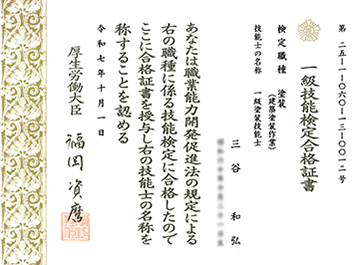 第二五-一-一〇六〇-一三-一〇〇一二号
一級技能検定合格証書
検定職種 塗装
(建築塗装作業)
技能士の名称 一級塗装技能士
三谷 和弘
あなたは職業能力開発促進法の規定による
右の職種に係る技能検定に合格したので
ここに合格証書を授与し右の技能士の名称を
称することを認める
令和七年十月一日
厚生労働大臣 福岡資麿